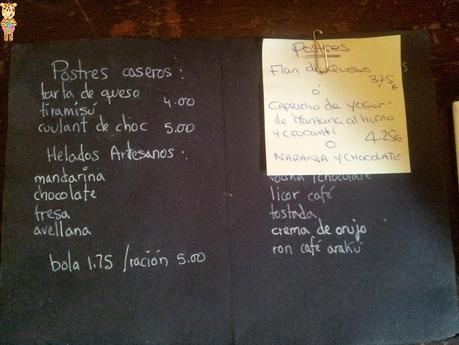 Postres caseros:
tarta de queso
tiramisú 4.00
coulant de choc 5.00
Helados Artesanos:
mandarina
chocolate
fresa
avellana
bola 1.75 /ración 5.00
Postres
Flan de Queso
3,75€
ó
Capricho de Yogur
de Manzana al horno
y crocanti
4.25€
O
Naranja y Chocolate
chocolate
licor café
tostada
crema de orujo
ron café arakú